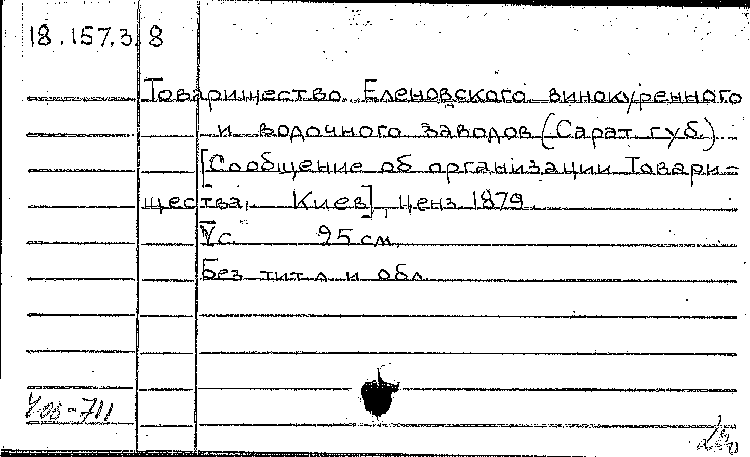 18.157.3.8
Товарищество Еленовского винокуренного
и водочного заводов (Сарат. губ.)
[Сообщение об организации Товари-
щества. Киев], ценз. 1879.
с. 25 см.
Без тит. л. и обл.
-711